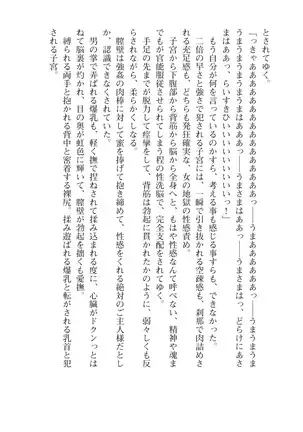 とされてゆく。
「つきゃああああああっ――うまああああああっ――うまうまうまうまうまうまうまあああああっ――うまさまはぁっ、どらけにあさまはああっ、らいすきひいいいいいいいいいっ！」
もう自分が何を言っているのかすら、考える事も感じる事すらも、できなかった。
二倍の早さと強さで犯される子宮には、一瞬で引き抜かれる空疎感も、刹那で肉詰めされる充足感も、どちらも発狂確実な、女の地獄の性感責め。
子宮から下腹部から背筋から脳から全身へと、もはや性感なんて呼べない、精神や魂までもが官能服従させられてしまう程の性洗脳で、完全支配をされてゆく。
手足の先までが脱力して痙攣をして、背筋は勃起に貫かれたかのように、弱々しくも反らされながら、柔らかくしなる。
膣壁は強姦の肉棒に対して蜜を捧げて抱き締めて、性感をくれる絶対のご主人様だとしか、認識できなくされていた。
男の掌で弄ばれる爆乳も、軽く撫で捏ねされて揉み込まれる度に、心臓がドクンっとはねて脳裏が灼けて、目の奥が虹色に輝いて、膣壁が勃起を拙くも愛撫。
縛られる両手と抱かれる背中と密着する裸尻。揉み遊ばれる爆乳と転がされる乳首と犯される子宮。